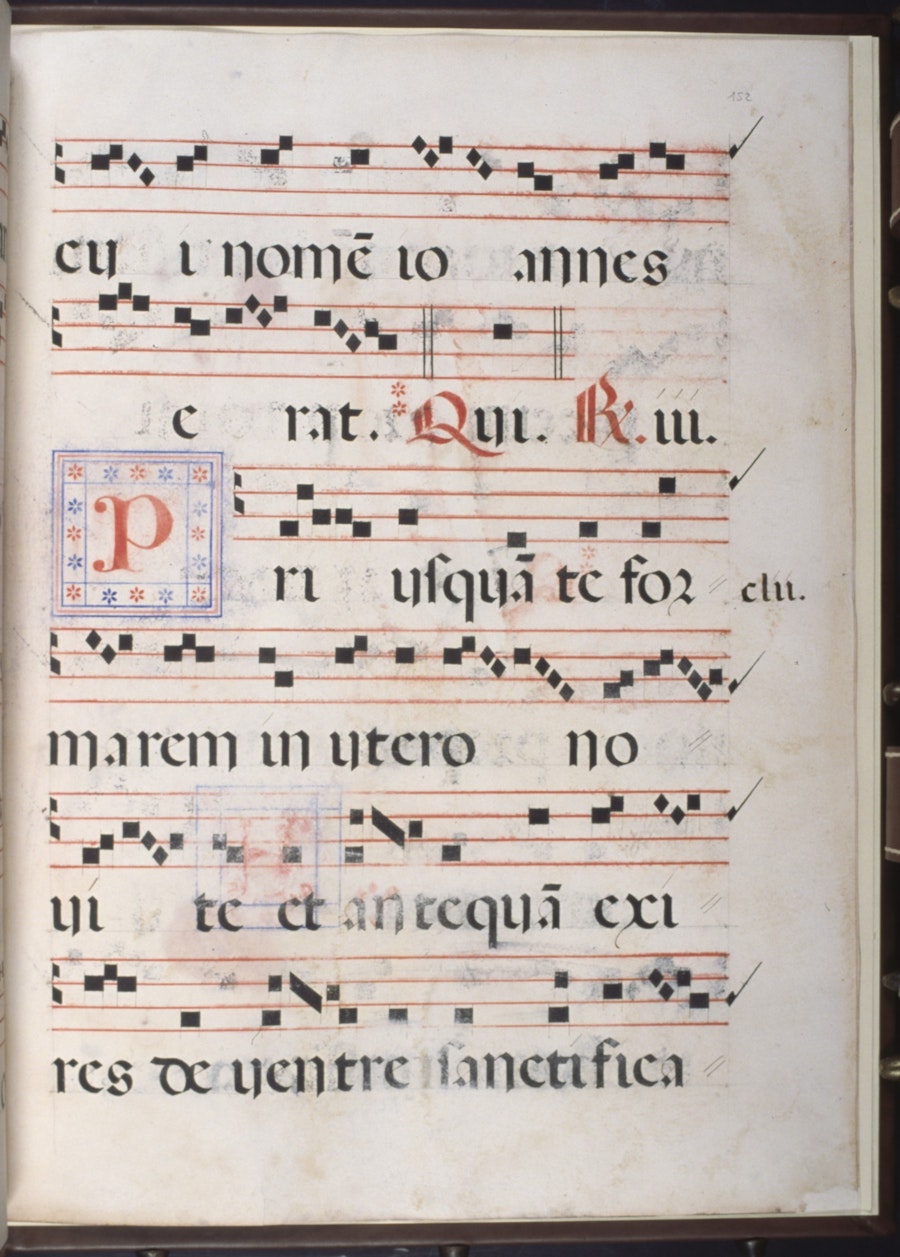 152
cu i nomē io annes
e rat. Qui. R. iii.
P ri usquā te for clii.
marem in utero no
ui te et antequā exi
res de uentre sanctifica